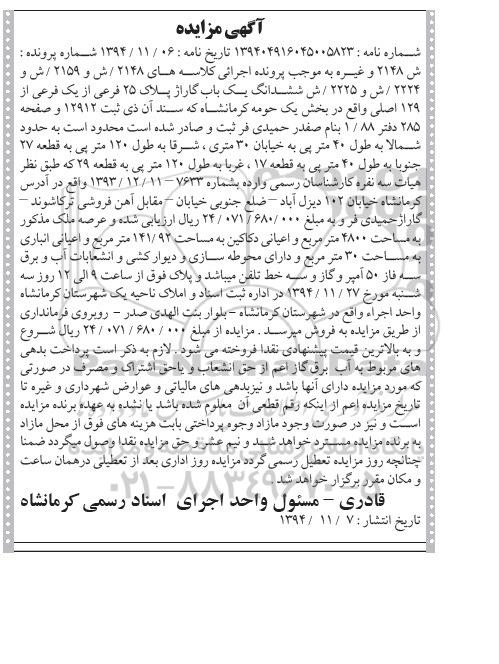 آگهی مزایده
شـماره نامه : ۱۳۹۴۰۴۹۱۶۰۴۵۰۰۵۸۲۳ تاریخ نامه : ۰۶ / ۱۱ / ۱۳۹۴ شـماره پرونده :
ش ۲۱۴۸ و غیـره به موجب پرونده اجرائی کلاسـه هـای ۲۱۴۸ / ش و ۲۱۵۹ / ش و
۲۲۲۴ / ش و ۲۲۲۵ / ش ششـدانگ یـک باب گاراژ پـلاک ۲۵ فرعی از یک فرعی از
۱۲۹ اصلی واقع در بخش یک حومه کرمانشـاه که سـند آن ذی ثبت ۱۲۹۱۲ و صفحه
۲۸۵ دفتر ۸۸ / ۱ بنام صفدر حمیدی فر ثبت و صادر شده است محدود است به حدود
شـمالا به طول ۴۰ متر پی به خیابان ۳۰ متری ، شـرقا به طول ۱۲۰ متر پی به قطعه ۲۷
جنوبا به طول ۴۰ متر پی به قطعه ۱۷ ، غربا به طول ۱۲۰ متر پی به قطعه ۲۹ که طبق نظر
هیات سـه نفره کارشناسان رسمی وارده بشماره ۷۶۳۳ – ۱۱ / ۱۲ / ۱۳۹۳ واقع در آدرس
کرمانشاه خیابان ۱۰۲ دیزل آباد – ضلع جنوبی خیابان – مقابل آهن فروشی ترکاشوند –
گاراژ حمیدی فر و به مبلغ ۰۰۰ / ۶۸۰ / ۰۷۱ / ۲۴ ریال ارزیابی شده و عرصه ملک مذکور
به مساحت ۴۸۰۰ متر مربع و اعیانی دکاکین به مساحت ۹۲ /۱۴۱ متر مربع و اعیانی انباری
به مسـاحت ۳۰ متر مربع و دارای محوطه سـازی و دیوار کشی و انشعابات آب و برق
سـه فاز ۵۰ آمپر و گاز و سـه خط تلفن میباشد و پلاک فوق از ساعت ۹ الی ۱۲ روز سه
شـنبه مورخ ۲۷ / ۱۱ / ۱۳۹۴ در اداره ثبت اسناد و املاک ناحیه یک شهرستان کرمانشاه
واحد اجراء واقع در شهرستان کرمانشاه – بلوار بنت الهدی صدر – روبروی فرمانداری
از طریق مزایده به فروش میرسـد . مزایده از مبلغ ۰۰۰ / ۶۸۰ / ۰۷۱ / ۲۴ ریال شـروع
و به بالاترین قیمت پیشنهادی نقدا فروخته می شود . لازم به ذکر است پرداخت بدهی
های مربوط به آب برق گاز اعم از حق انشعاب و یاحق اشتراک و مصرف در صورتی
که مورد مزایده دارای آنها باشد و نیزبدهی های مالیاتی و عوارض شهرداری و غیره تا
تاریخ مزایده اعم از اینکه رقم قطعی آن معلوم شده باشد یا نشده به عهده برنده مزایده
اسـت و نیز در صورت وجود مازاد وجوه پرداختی بابت هزینه های فوق از محل مازاد
به برنده مزایده مسـترد خواهد شـد و نیم عشـر و حق مزایده نقدا وصول میگردد ضمنا
چنانچه روز مزایده تعطیل رسمی گردد مزایده روز اداری بعد از تعطیلی درهمان ساعت
و مکان مقرر برگزار خواهد شد .
قادری – مسئول واحد اجرای اسناد رسمی کرمانشاه
تاریخ انتشار : ۷ / ۱۱ / ۱۳۹۴
۰۲۱-۸۸۳۴۹۶۷۰-۵